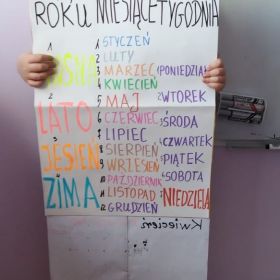 ROKU MIESIĄCE TYGODNIA
1 STYCZEŃ
2 LUTY
3 MARZEC
4 KWIECIEŃ
5 MAJ
6 CZERWIEC
7 LIPIEC
8 SIERPIEŃ
9 WRZESIEŃ
10 PAŹDZIERNIK
11 LISTOPAD
12 GRUDZIEŃ
LATO
JESIEŃ
ZIMA
WTOREK
ŚRODA
CZWARTEK
PIĄTEK
SOBOTA
NIEDZIELA
Kwiecień